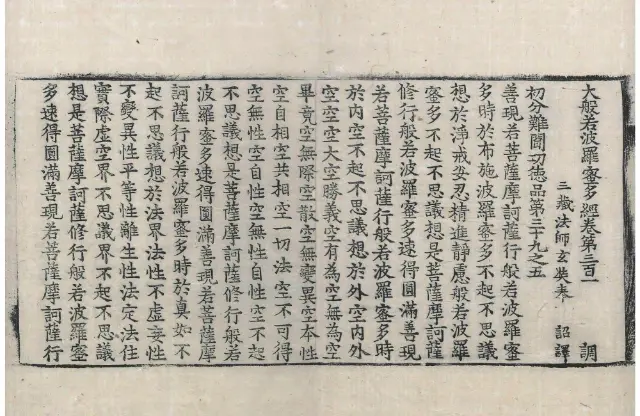 大般若波羅蜜多經卷第三百一 調
三藏法師玄奘奉 詔譯
初分難聞功德品第三十九之五
善現若菩薩摩訶薩行般若波羅蜜
多時於布施波羅蜜多不起不思議
想於淨戒安忍精進靜慮般若波羅
蜜多不起不思議想是菩薩摩訶薩
修行般若波羅蜜多速得圓滿善現
若菩薩摩訶薩行般若波羅蜜多時
於內空不起不思議想於外空內外
空空空大空勝義空有為空無為空
畢竟空無際空散空無變異空本性
空自相空共相空一切法空不可得
空無性空自性空無性自性空不起
不思議想是菩薩摩訶薩修行般若
波羅蜜多速得圓滿善現若菩薩摩
訶薩行般若波羅蜜多時於真如不
起不思議想於法界法性不虛妄性
不變異性平等性離生性法定法住
實際虛空界不思議界不起不思議
想是菩薩摩訶薩修行般若波羅蜜
多速得圓滿善現若菩薩摩訶薩行